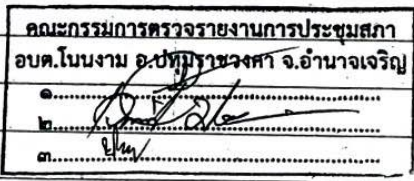 คณะกรรมการตรวจรายงานการประชุมสภา
อบต.โนนงาม อ.ปทุมราชวงศา จ.อำนาจเจริญ
๑
๒
๓